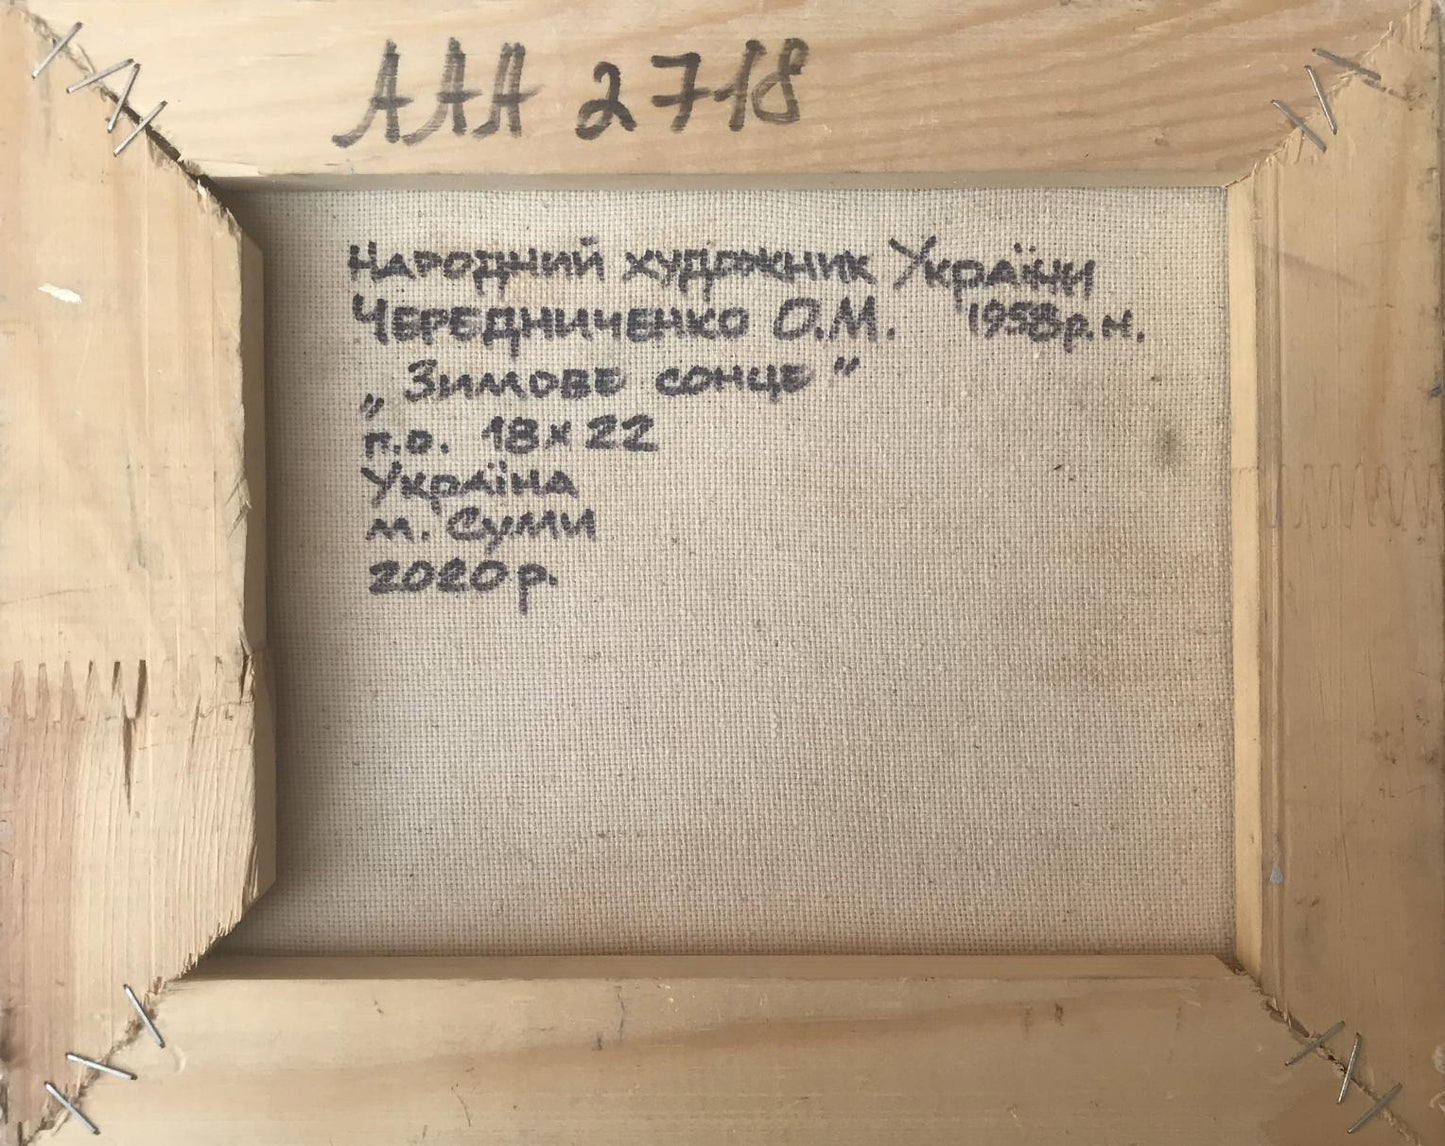 ААА 2718
Народний художник України
Чередниченко О.М. 1958р.н.
„Зимове сонце"
п.о. 18х22
Україна
м. Суми
2020р.